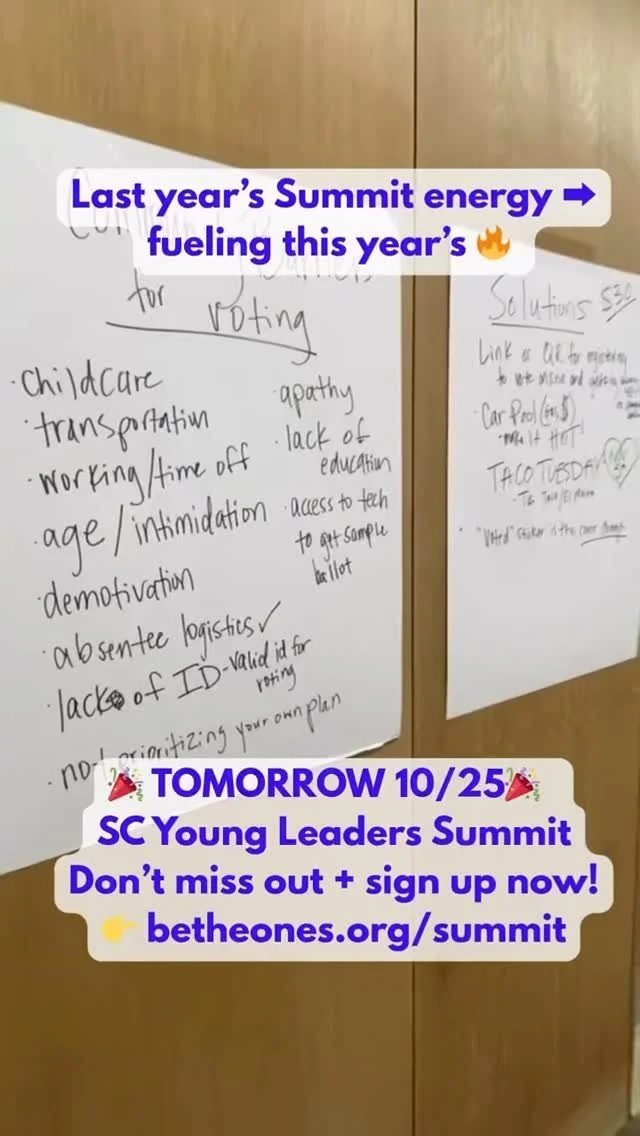 Last year’s Summit energy ➡
fueling this year’s 🔥
for voting
· childcare
· transportation
· working/time off
· age/intimidation
· demotivation
· absentee logistics ✓
· lack of ID - valid id for
voting
· not prioritizing your own plan
· apathy
· lack of
education
· access to tech
to get sample
ballot
Solutions
Link or QR for registering
to vote
Car Pool
- make it HOT!
TACO TUESDAY
"Voted" sticker is the
🎉 TOMORROW 10/25🎉
SC Young Leaders Summit
Don’t miss out + sign up now!
👉 betheones.org/summit